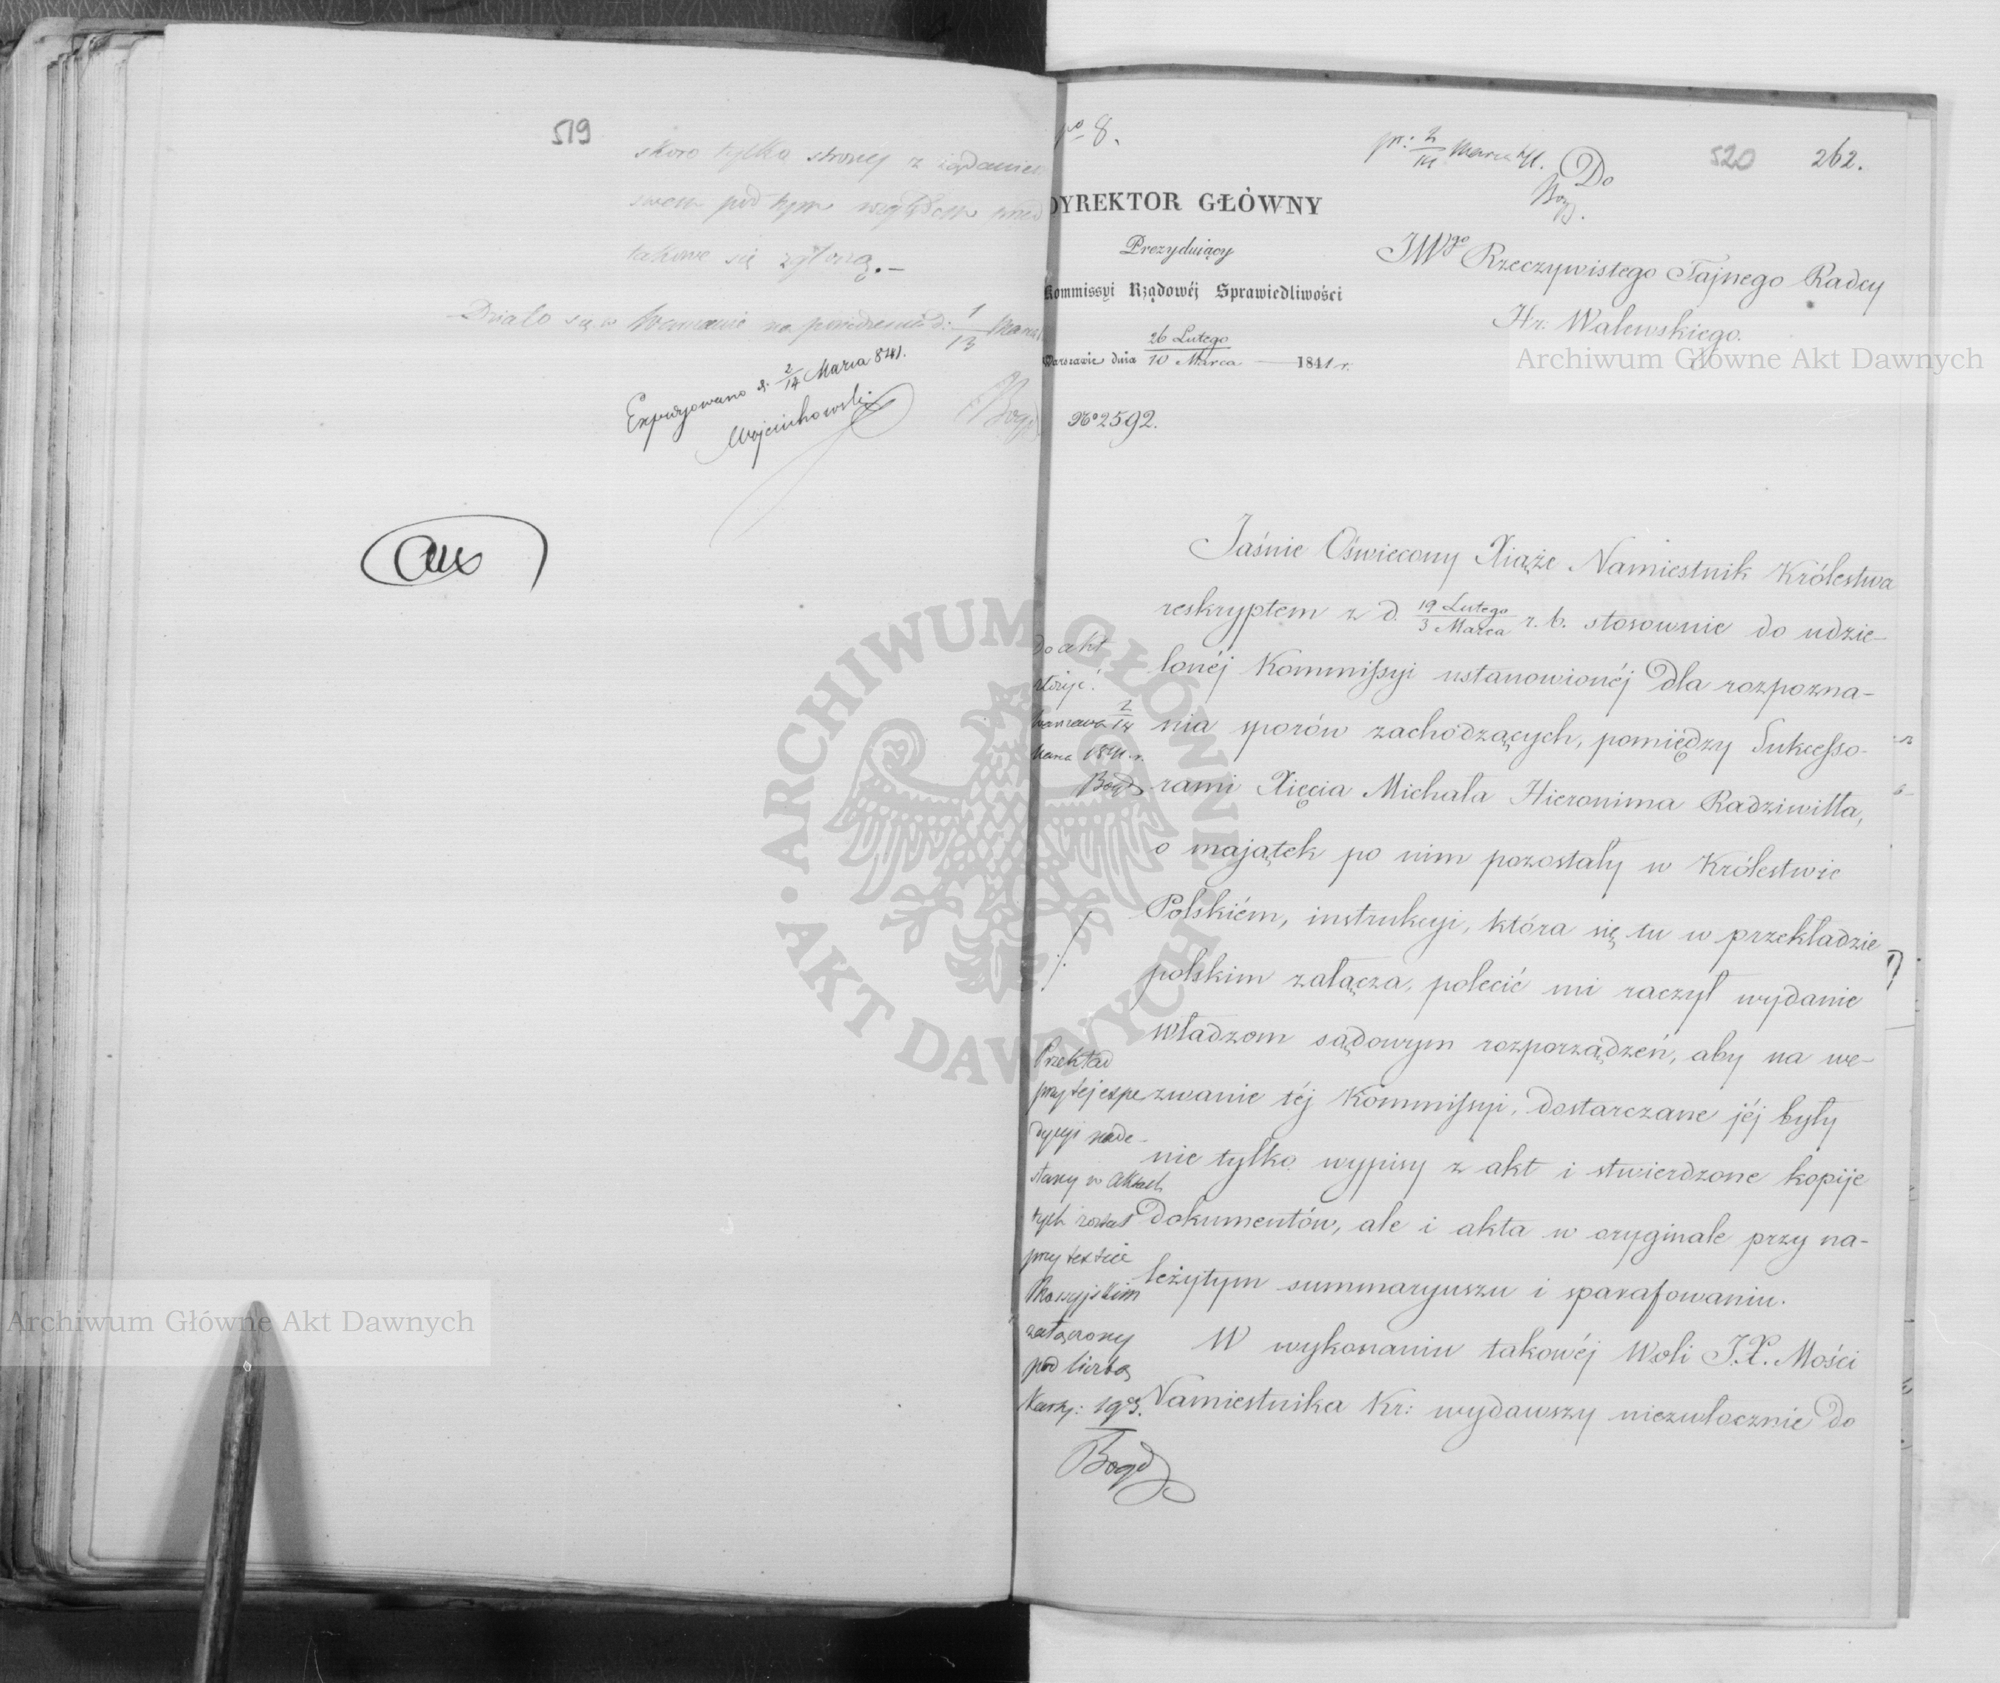 519
skoro tylko strony z żądaniem
swem pod tym względem przed
takowe się zgłoszą.—
Działo się w Warszawie na posiedzeniu d: 1/13 Marca
Expedyowano d. 2/14 Marca 841.
Wojciechowski
Bogd
No 8.
pr: 2/14 Marca 841.
Bogd.
520
262.
DYREKTOR GŁÓWNY
Prezydujący
Kommissyi Rządowéj Sprawiedliwości
Warszawie dnia 26 Lutego / 10 Marca 1841 r.
No 2592.
Do
JWgo Rzeczywistego Tajnego Radcy
Hr: Walewskiego.
Jaśnie Oświecony Xiąże Namiestnik Królestwa
reskryptem z d. 19 Lutego / 3 Marca r. b. stosownie do udzie-
lonéj Kommissyi ustanowionéj dla rozpozna-
nia sporów zachodzących, pomiędzy Sukcesso-
rami Xięcia Michała Hieronima Radziwiłła,
o majątek po nim pozostały w Królestwie
Polskiém, instrukcyi, która się tu w przekładzie
polskim załącza, polecić mi raczył wydanie
władzom sądowym rozporządzeń, aby na we-
zwanie téj Kommissyi, dostarczane jéj były
nie tylko wypisy z akt i stwierdzone kopije
dokumentów, ale i akta w oryginale przy na-
leżytym summaryuszu i sparafowaniu.
W wykonaniu takowéj Woli J.X. Mości
Namiestnika Kr: wydawszy niezwłocznie do
do akt
złożyć!
Warszawa 2/14
Marca 1841. r.
Bogd
Przekład
przy tej expe
dycyi nade-
słany w aktach
tych został
przy texcie
Rossyjskim
załączony
pod liczbą
Karty: 193.
Bogd
Archiwum Główne Akt Dawnych
Archiwum Główne Akt Dawnych
ARCHIWUM GŁÓWNE AKT DAWNYCH